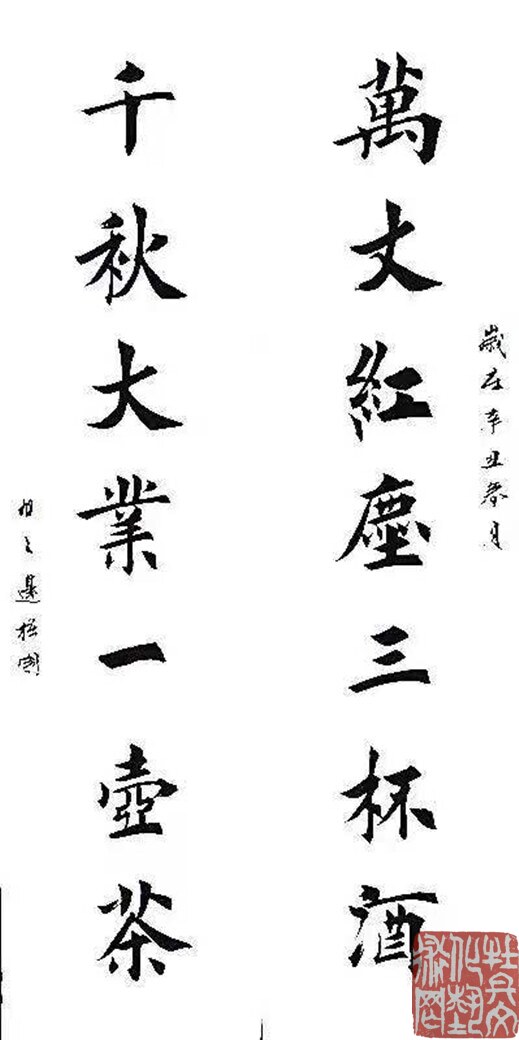 歲在辛丑春月
萬丈紅塵三杯酒
千秋大業一壺茶